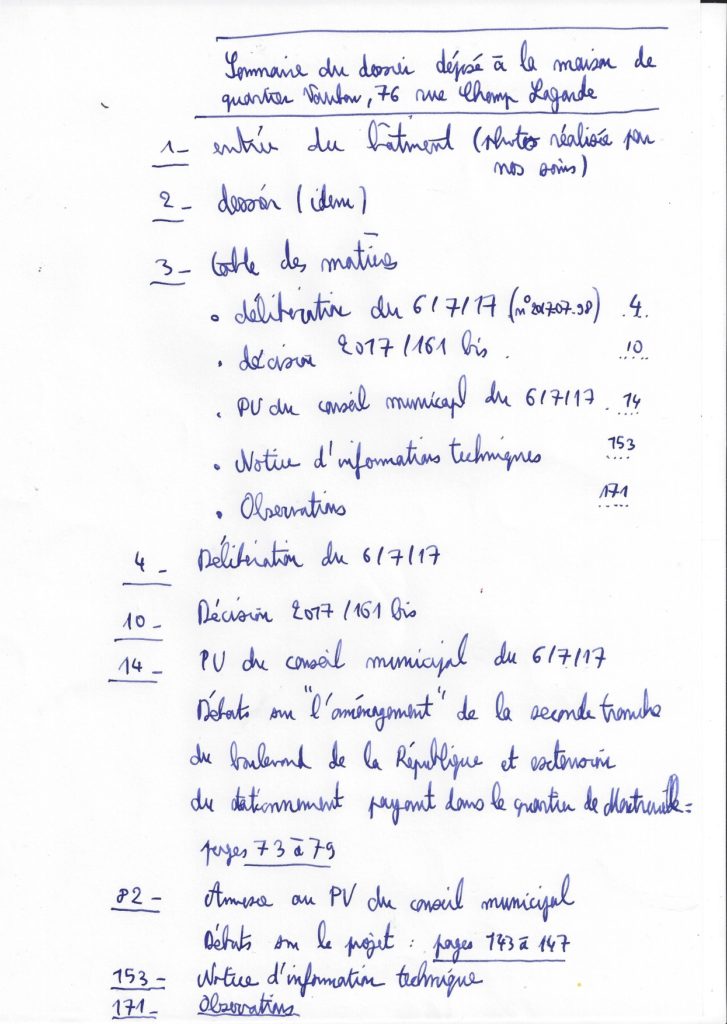 Sommaire du dossier déposé à la maison de
quartier Vauban, 76 rue Champ Lagarde
1- entrée du bâtiment (photos réalisée par
nos soins)
2- dossier (idem)
3- table des matières
• délibération du 6/7/17 (n° 2017.07.98) 4
• décision 2017/161 bis 10
• PV du conseil municipal du 6/7/17 14
• Notice d'informations techniques 153
• Observations 171
4- Délibération du 6/7/17
10- Décision 2017/161 bis
14- PV du conseil municipal du 6/7/17
Débats sur "l'aménagement" de la seconde tranche
du boulevard de la République et extension
du stationnement payant dans le quartier de Montreuil =
pages 73 à 79
82- Annexe au PV du conseil municipal
Débats sur le projet : pages 143 à 147
153- Notice d'information technique
171- Observations